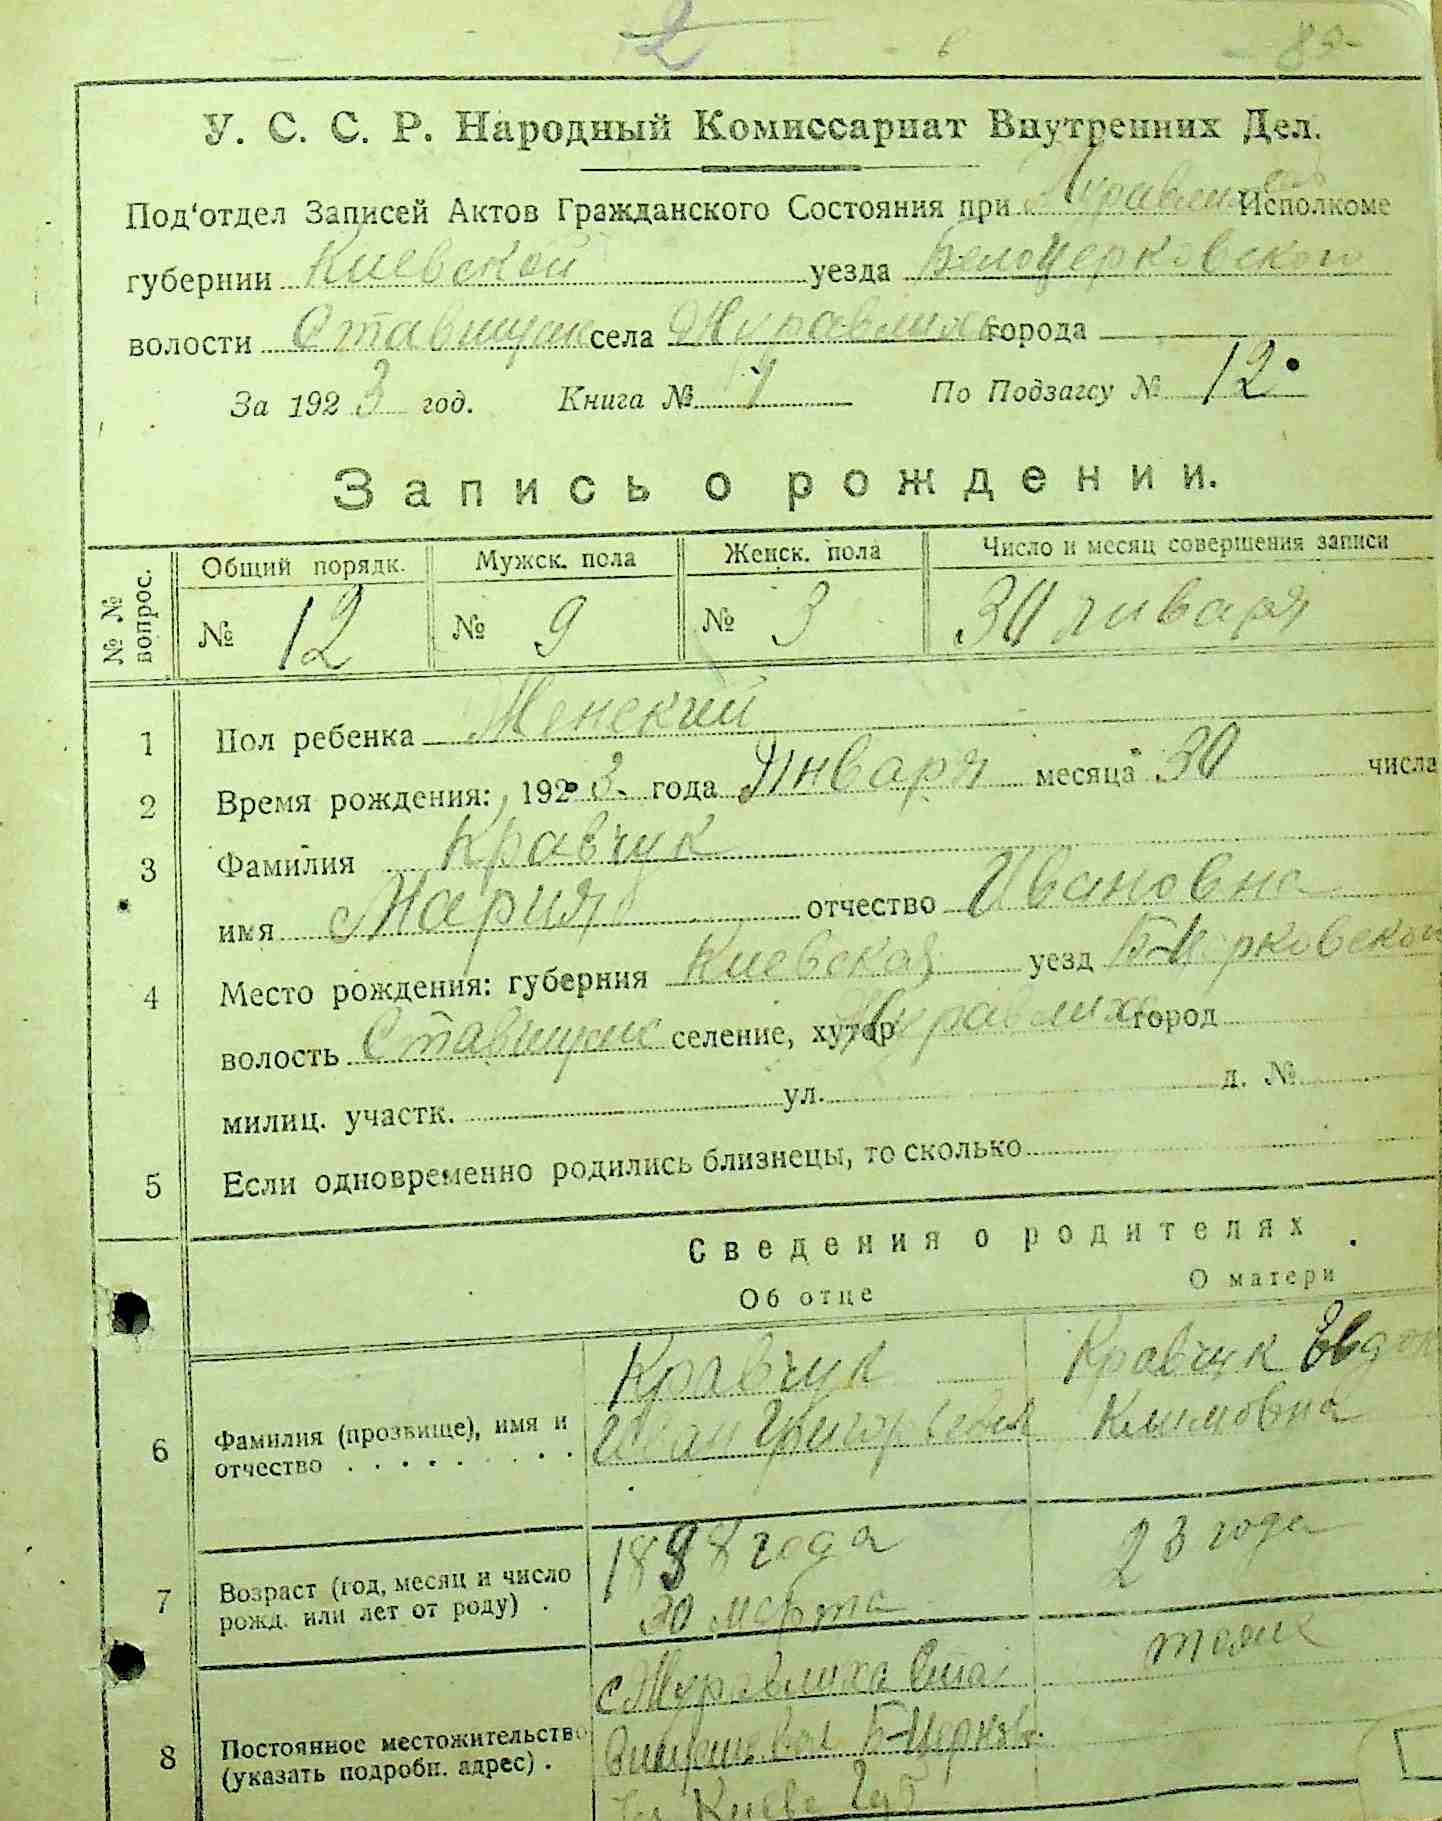 2
У. С. С. Р. Народный Комиссариат Внутренних Дел.
Под'отдел Записей Актов Гражданского Состояния при Исполкоме
губернии Киевской уезда Белоцерковского
волости Ставищан села Журавлиха города
За 1923 год. Книга № 1 По Подзагсу № 12
Запись о рождении.
№ № вопрос. Общий порядк. Мужск. пола Женск. пола Число и месяц совершения записи
№ 12 № 9 № 3 30 января
1 Пол ребенка Женский
2 Время рождения: 1923 года Января месяца 30 числа
3 Фамилия Кравчук
имя Мария отчество Ивановна
4 Место рождения: губерния Киевская уезд Б-Церковской
волость селение, хутор Журавлиха город
милиц. участк. ул. д. №
5 Если одновременно родились близнецы, то сколько
Сведения о родителях
Об отце О матери
Кравчук Кравчук Евдок
6 Фамилия (прозвище), имя и Иван Григорьевич Климовна
отчество
7 Возраст (год, месяц и число 1898 года 23 года
рожд. или лет от роду) . 30 марта
с Журавлиха Ста тоже
8 Постоянное местожительство Б-Церков.
(указать подробн. адрес) . Киев Губ